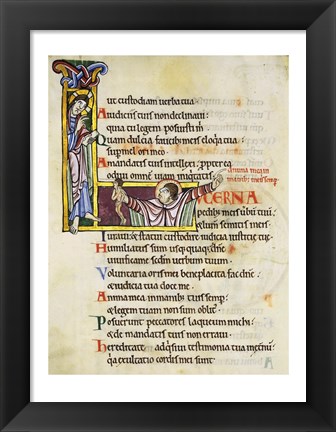 ut custodiam uerba tua.
A iudiciis tuis non declinaui:
quia tu legem posuisti m̄.
Quam dulcia faucib; meis eloq̄a tua:
sup mel ori meo.
A mandatis tuis intellexi: ppterea
odiui omnē uiam iniq̄tatis.
Anima mea in
manib; tuis semp
L CERNA
pedib; meis ūbū tuū:
& lumen semitis meis.
Iuraui: & statui custodire iudicia iustitię tuę
Humiliatus sum usq;
uiuifica me scdm uerbum tuum.
Voluntaria oris mei beneplacita fac dñe:
& iudicia tua doce me.
Anima mea in manib; tuis semp:
& legem tuam non sum oblit;
Posuerunt peccatores laqueum michi:
& de mandatis tuis non erraui.
Hereditate adq̄siui testimonia tua in
q̄a exultatio cordis mei sunt.